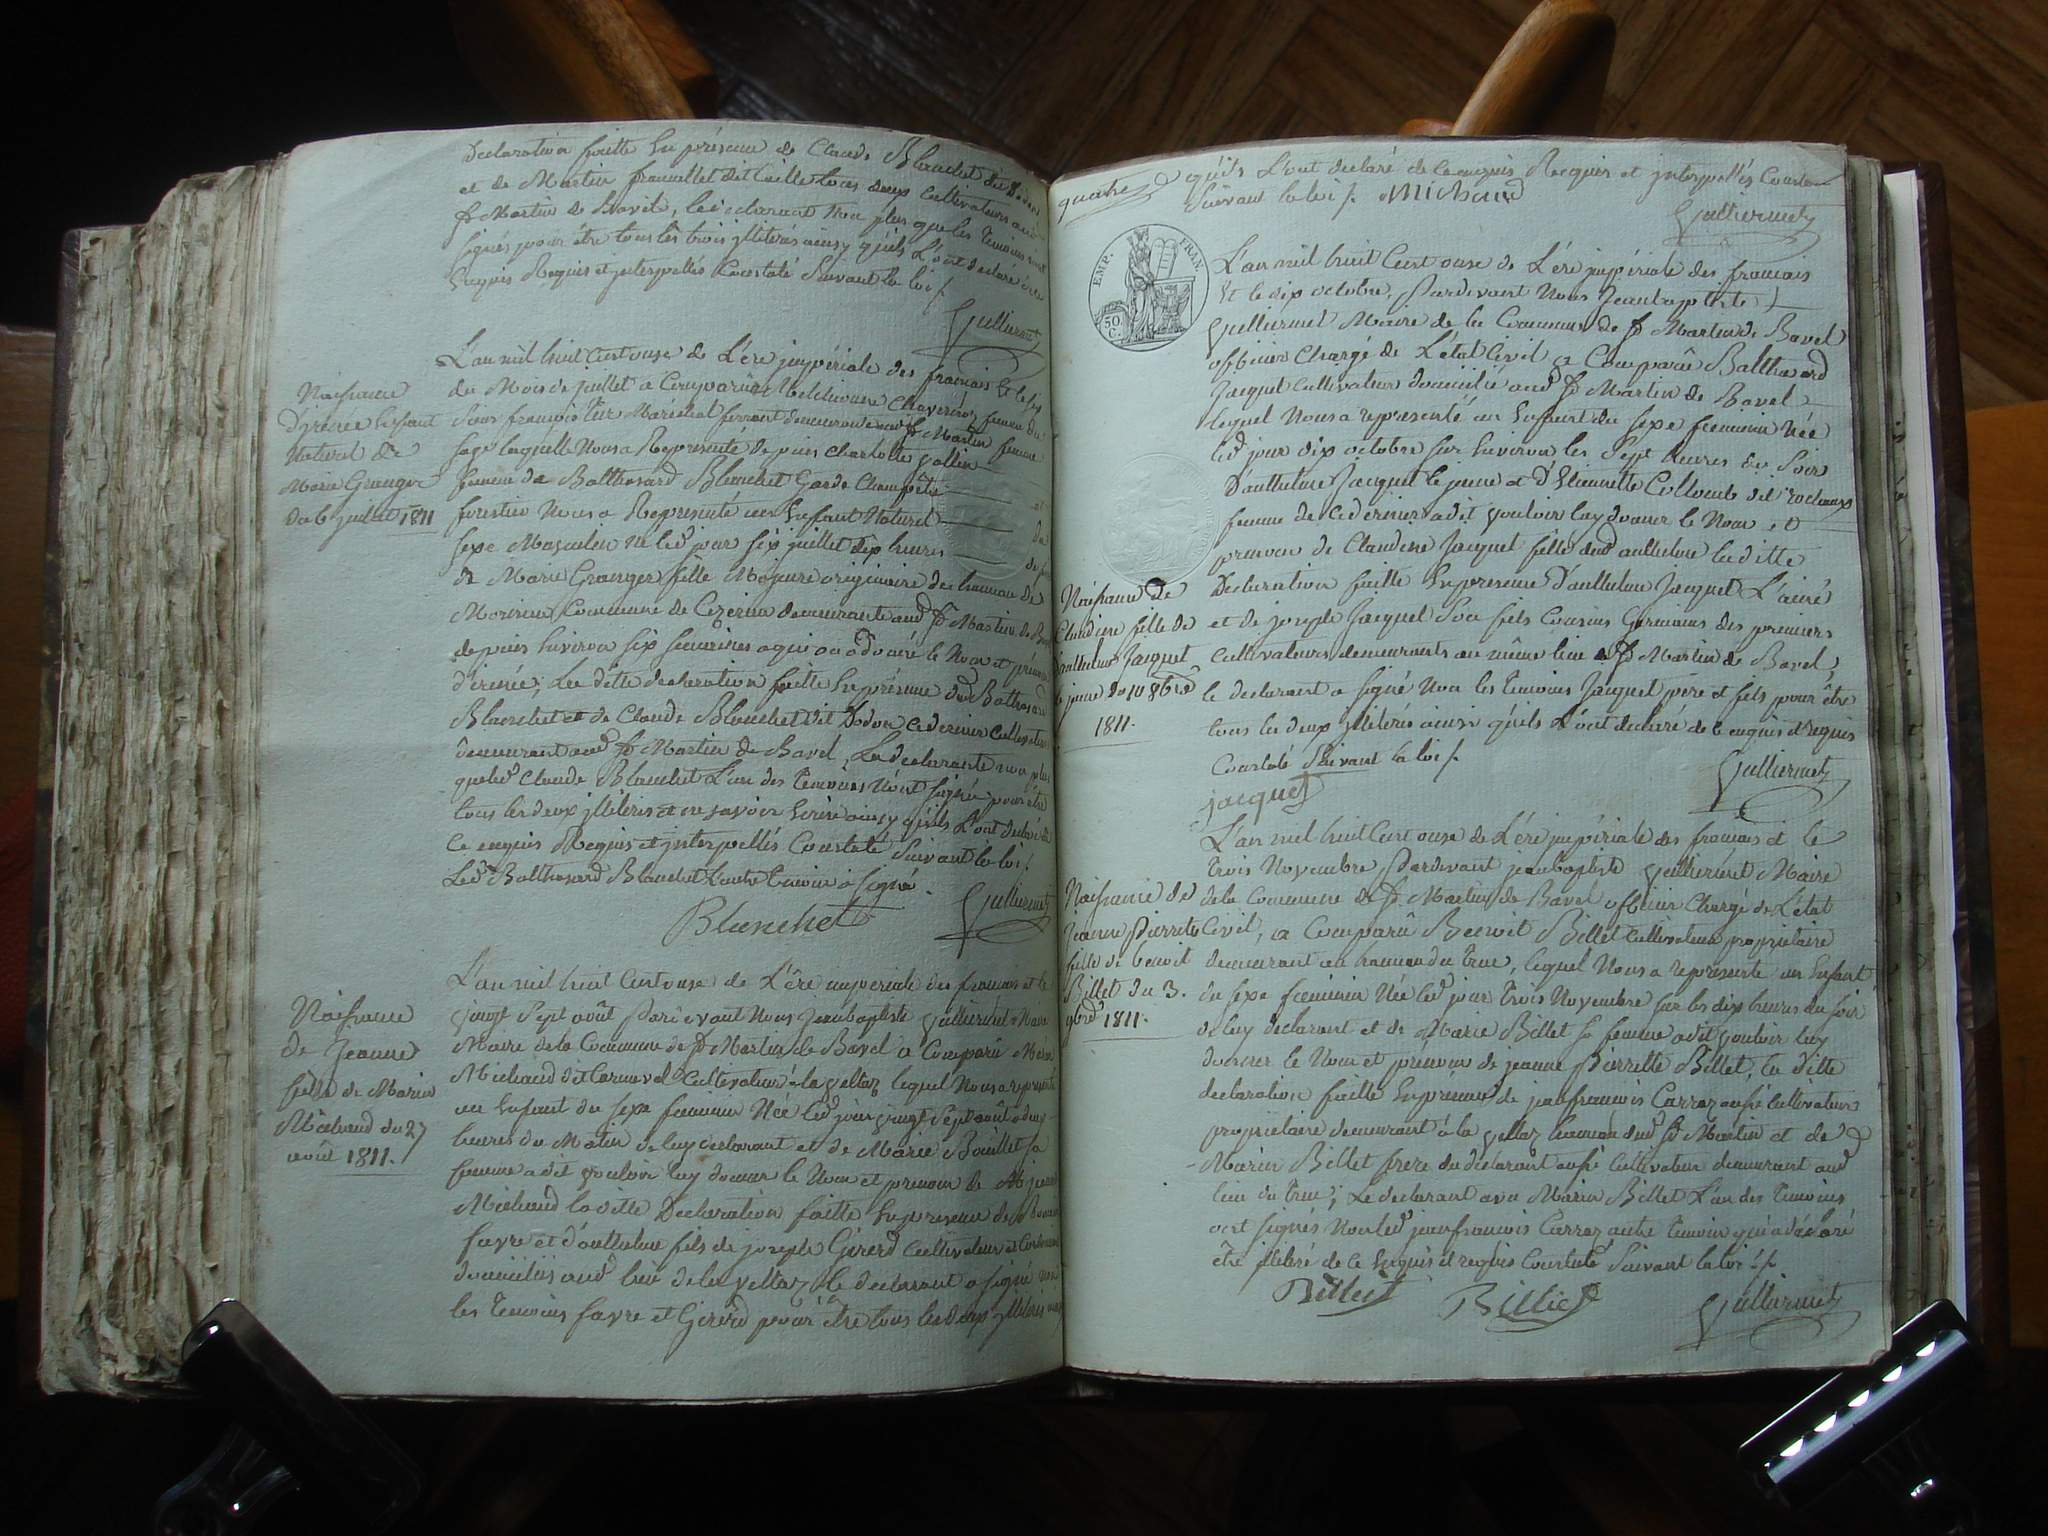 Declaration faitte En présence de Claude Blanchet dit Dodon
et de Martin framillet dit Caille tous deux cultivateurs aud
St Martin de Bavel, le déclarant Non plus que les temoins n'ont
signés pour être tous les trois illiterés ainsy qu'ils L'ont declaré de ce
Enquis Requis et interpellés Constaté Suivant la loi /.
Gulliermet
Naissance
D'yrénée Enfant
Naturel de
Marie Granger
du 6 juillet 1811
L'an mil huit Cent onze de L'ère impériale des français Le six
du Mois de juillet a Comparüe Melchionne Chavériroz femme du
Sieur françois Maréchal ferrant demeurant aud St Martin femme
sage laquelle Nous a Représenté depuis Charlotte Gallin
femme de Balthasard Blanchet Garde Champêtre
forestier Nous a Représenté un Enfant Naturel
sexe Masculin né led jour six juillet dix heures
de Marie Granger fille Majeure originaire du hameau de
Commune de Ceyzerieu demeurante aud St Martin de Bavel
depuis Environ six semaines a qui on a donné le Nom et prénom
d'irénée; La ditte declaration faitte En présence dud Balthasard
Blanchet et de Claude Blanchet dit Dodon ce dernier cultivateur
demeurant aud St Martin de Bavel, La declarante non plus
que led Claude Blanchet L'un des temoins N'ont signé pour être
tous les deux illiterés et ne savoir Ecrire ainsy qu'ils L'ont declaré de
Ce enquis Requis et interpellés Constaté Suivant la loi /.
Led Balthasard Blanchet L'autre temoin a signé.
Blanchet Gulliermet
Naissance
de Jeanne
fille de Marin
Michaud du 27
août 1811.
L'an mil huit Cent onze de L'ère imperiale des français et le
vingt Sept août Pardevant Nous Jeanbaptiste Gulliermet Maire
Maire de la Commune de St Martin de Bavel a Comparû Marin
Michaud dit Carneval Cultivateur à la Vellaz lequel Nous a représenté
un Enfant du sexe feminin Née led jour vingt Sept août a deux
heures du Matin de luy declarant et de Marie Bouillet sa
femme a dit vouloir luy donner le Nom et prenom de Jeanne
Michaud la ditte Declaration faitte En presence de
favre et d'anthelme fils de joseph Girerd Cultivateurs et
domiciliés aud lieu de la Vellaz, le declarant a signé non
les temoins favre et Girerd pour être tous les deux illiterés ainsy
quatre
qu'ils L'ont declaré de ce enquis Requis et interpellés Constaté
Suivant la loi /. Michaud
Gulliermet
EMP. FRAN.
50 C.
L'an mil huit Cent onze de L'ére impériale des francais
Et le dix octobre, Pardevant Nous Jeanbaptiste
Gulliermet Maire de la Commune de St Martin de Bavel
officier Chargé de L'état Civil a Comparû Balthasard
Jacquet Cultivateur domicilié aud St Martin de Bavel
lequel Nous a représenté un Enfant du sexe feminin Née
led jour dix octobre sur Environ les Sept heures du Soir
D'anthelme Jacquet le jeune et D'Etiennette Collomb dit rochaux
femme de ce dernier a dit vouloir luy donner le Nom et
prenom de Claudine Jacquet fille dud anthelme la ditte
Declaration faitte En presence D'anthelme Jacquet L'ainé
et de joseph Jacquet Son fils Cousins Germains des premiers
Cultivateurs demeurants au même lieu de St Martin de Bavel,
le declarant a signé Non les temoins Jacquet père et fils pour être
tous les deux illiterés ainsi qu'ils L'ont declaré de ce enquis et requis
Constaté Suivant la loi /.
Naissance de
Claudine fille de
d'anthelme Jacquet
le jeune du 10 8bre
1811.
jacquet Gulliermet
Naissance de
Jeanne Pierrette
fille de benoit
Billet du 3.
9bre 1811.
L'an mil huit Cent onze de L'ére impériale des français et le
trois Novembre Pardevant jeanbaptiste Gulliermet Maire
de la Commune de St Martin de Bavel officier Chargé de L'état
Civil, a Comparû Benoit Billet Cultivateur propriétaire
demeurant au hameau du truc, lequel Nous a représenté un Enfant
du sexe feminin Née led jour trois Novembre sur les dix heures du soir
de luy declarant et de Marie Billet sa femme a dit vouloir luy
donner le Nom et prénom de jeanne Pierrette Billet; la ditte
declaration faitte En présence de jeanfrancois Carraz aussi Cultivateur
propriétaire demeurant à la Vellaz hameau dud St Martin et de
Marin Billet frere du declarant aussi Cultivateur demeurant aud
lieu du truc; Le declarant avec Marin Billet L'un des temoins
ont signés Non led jeanfrancois Carraz autre temoin qui a declaré
être illitéré de ce Enquis et requis Constaté Suivant la loi /.
Billiet Billiet Gulliermet